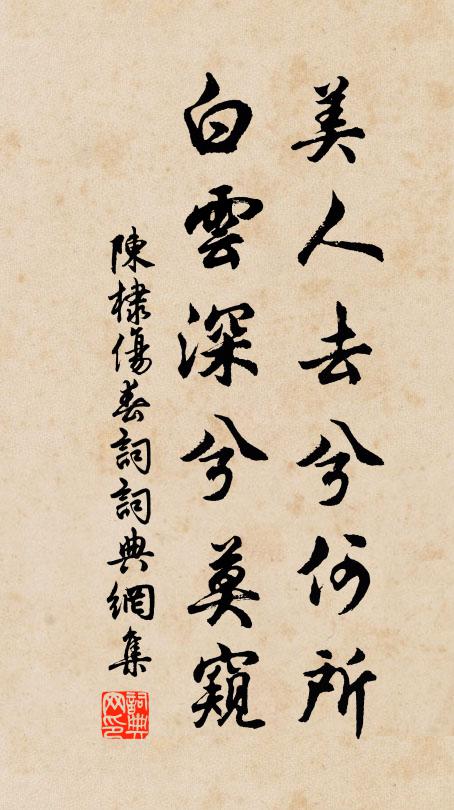 美人去兮何所
白雲深兮莫窺
陳棣傷春詞詞典網集
詞典网印